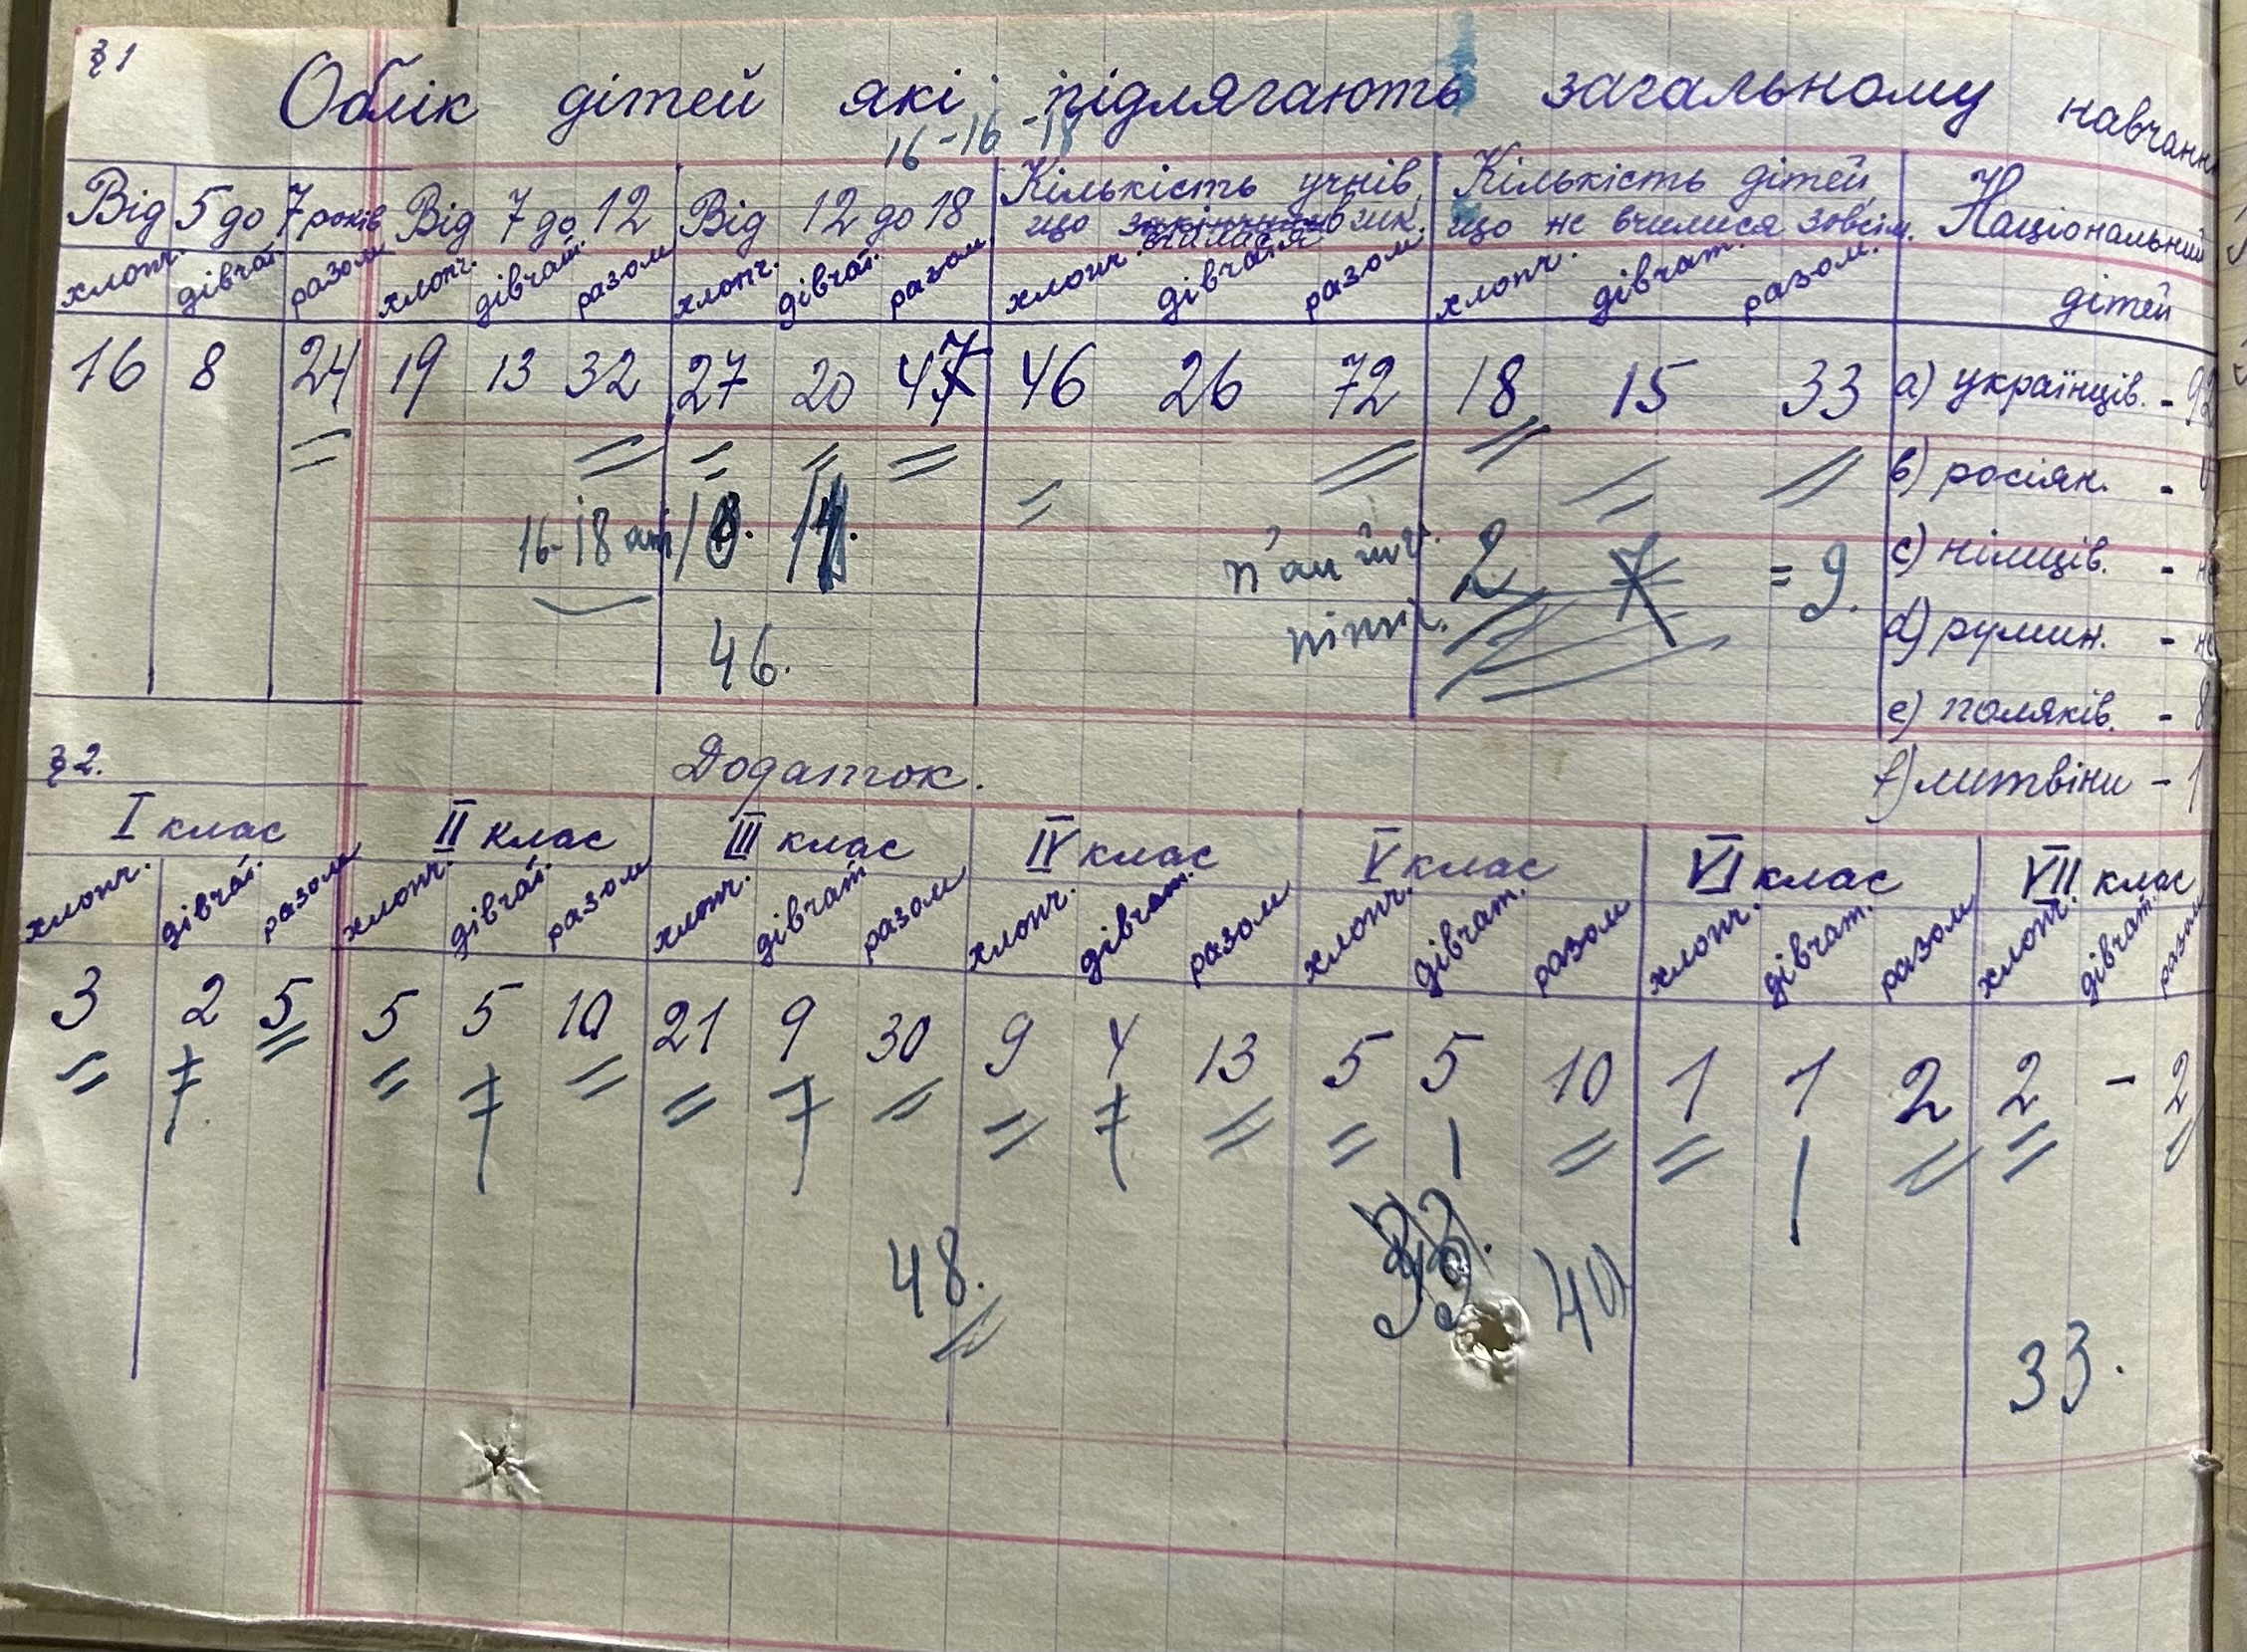 §1
Облік дітей які підлягають загальному навчанн
16-16-18
Від 5 до 7 років Від 7 до 12 Від 12 до 18 Кількість учнів, Кількість дітей, Національний
що вчилися в шк. що не вчилися зовсім. дітей
хлопч. дівчат. разом хлопч. дівчат. разом хлопч. дівчат. разом хлопч. дівчат разом хлопч. дівчат. разом.
16 8 24 19 13 32 27 20 47 46 26 72 18 15 33 а) українців. - 92
в) росіян. -
16-18
2 7 = 9. с) німців. -
d) румин. -
46.
е) поляків. - 8
§2. Додаток. f) литвіни - 1
I клас II клас III клас IV клас V клас VI клас VII клас
хлопч. дівчат. разом хлопч. дівчат. разом хлопч. дівчат разом хлопч. дівчат. разом хлопч. дівчат. разом хлопч. дівчат. разом хлопч. дівчат. разом
3 2 5 5 5 10 21 9 30 9 4 13 5 5 10 1 1 2 2 - 2
48. 40
33.